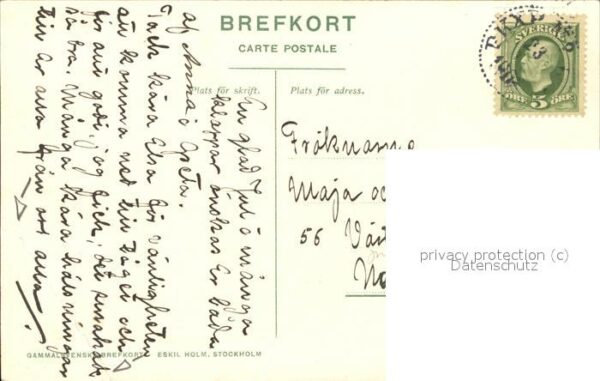 BREFKORT
CARTE POSTALE
SVERIGE
5
ÖRE ÖRE
Plats för skrift.
Plats för adress.
En glad Jul o många
klappar önskas Er båda
af Anna o Greta.
Tack kära Elsa för vänligheten
att komma ned till tåget och
för allt godt jag fick; det smakade
så bra. Många kära hälsningar
till er alla från oss alla
Fröknarna
Maja oc
56 Väs
No
privacy protection (c)
Datenschutz
GAMMALSVENSKA BREFKORT. ESKIL HOLM, STOCKHOLM